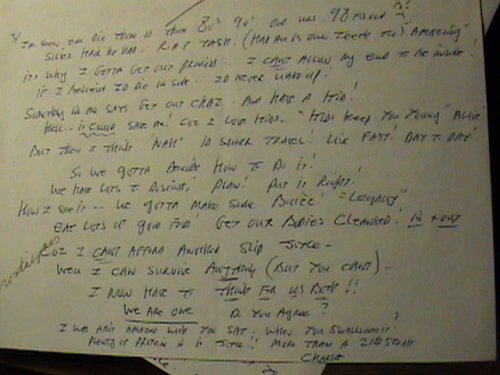 3/ I've known em die there in there 80's 90's one was 98 years old !!
Silver hair he had. R.A.F Tash! (Had all his own teeth too) "Amazing"
it's why I gotta get out princess.. I can't allow my end to be inside!
if I believe I'd die in side.. I'd never wake up!
Something in me says get out Chaz. And have a kid!
Hell.. it could save me! Coz I love kids.. "Kids keep you young" Alive!
But then I think Nah! I'd sooner travel! Live fast! Day to day!
So we gotta decide how to do it!
We have lots to discuss, plan! Put it right!
How I see it -- we gotta make sure "Legally"
eat lots of good food! Get our bodies cleansed! in + out
Coz I can't afford another slip
Well I can survive anything (but you can't) --
I now have to think for us both!!
We are one Do you agree?
I was amazed what you sat. When you swallowed it?
Plenty of protein in is !! More than a steak